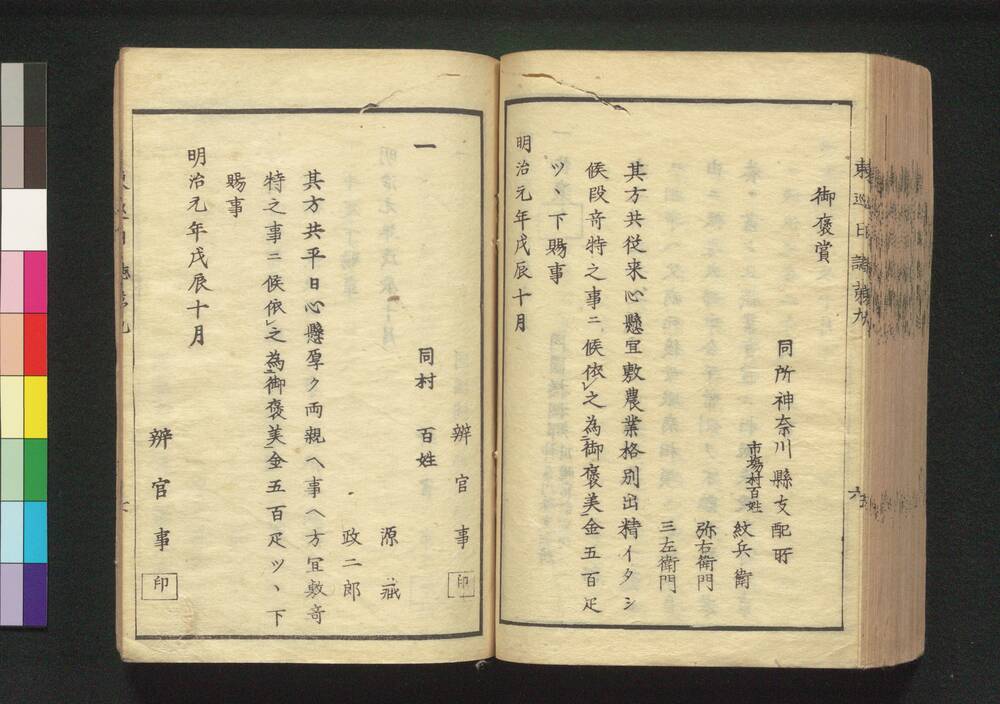 東巡日誌第九
六
御褒賞
同所神奈川縣支配所
市塲村百姓
紋兵衛
弥右衛門
三左衛門
其方共従来心懸宜敷農業格別出精イタシ
候段竒特之事ニ候依之為御褒美金五百疋
ツヽ下賜事
明治元年戊辰十月
辨官事
印
一
同村 百姓
源蔵
政二郎
其方共平日心懸厚ク両親ヘ事ヘ方宜敷竒
特之事ニ候依之為御褒美金五百疋ツヽ下
賜事
明治元年戊辰十月
辨官事
印